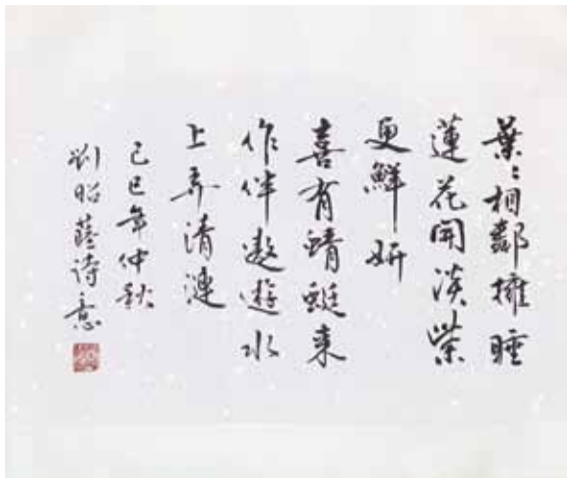 葉〻相鄰擁睡
蓮花開淡紫
更鮮妍
喜有蜻蜓来
作伴遨遊水
上弄清漣
己巳年仲秋
劉昭蘊诗意